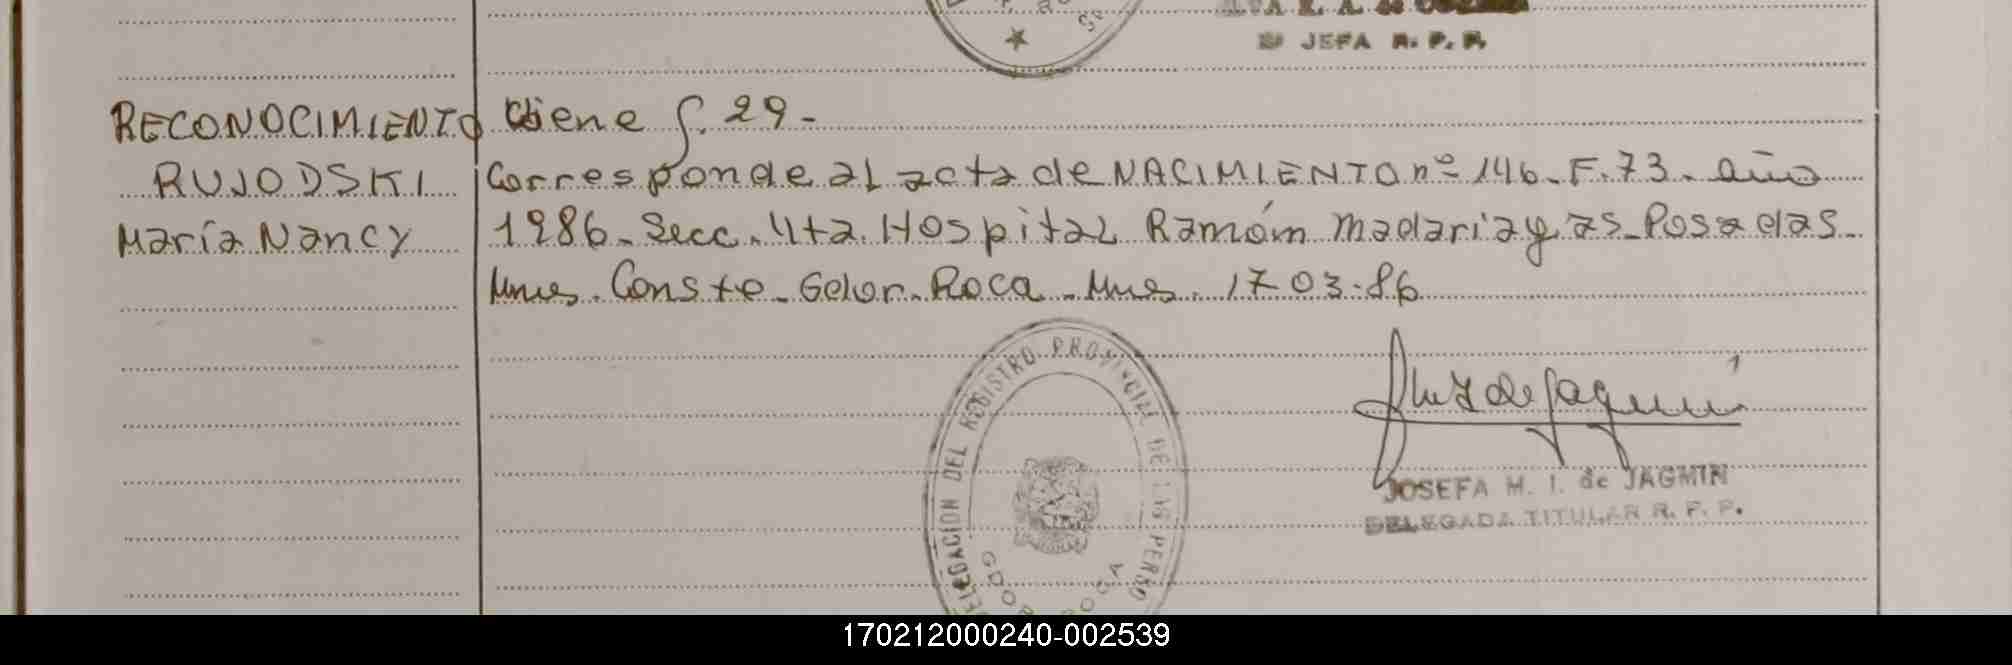 JEFA R. P. P.
RECONOCIMIENTO Viene f. 29.-
RUJODSKI Corresponde al acta de NACIMIENTO nº 146. F. 73. año
María Nancy 1986. Secc. 4ta. Hospital Ramón Madariagas. Posadas.
Mnes. Conste. Gdor. Roca. Mnes. 17 03.86
DELEGACION DEL REGISTRO PROVINCIAL DE LAS PERSO
GDOR ROCA
JOSEFA M. I. de JAGMIN
DELEGADA TITULAR R. P. P.
170212000240-002539